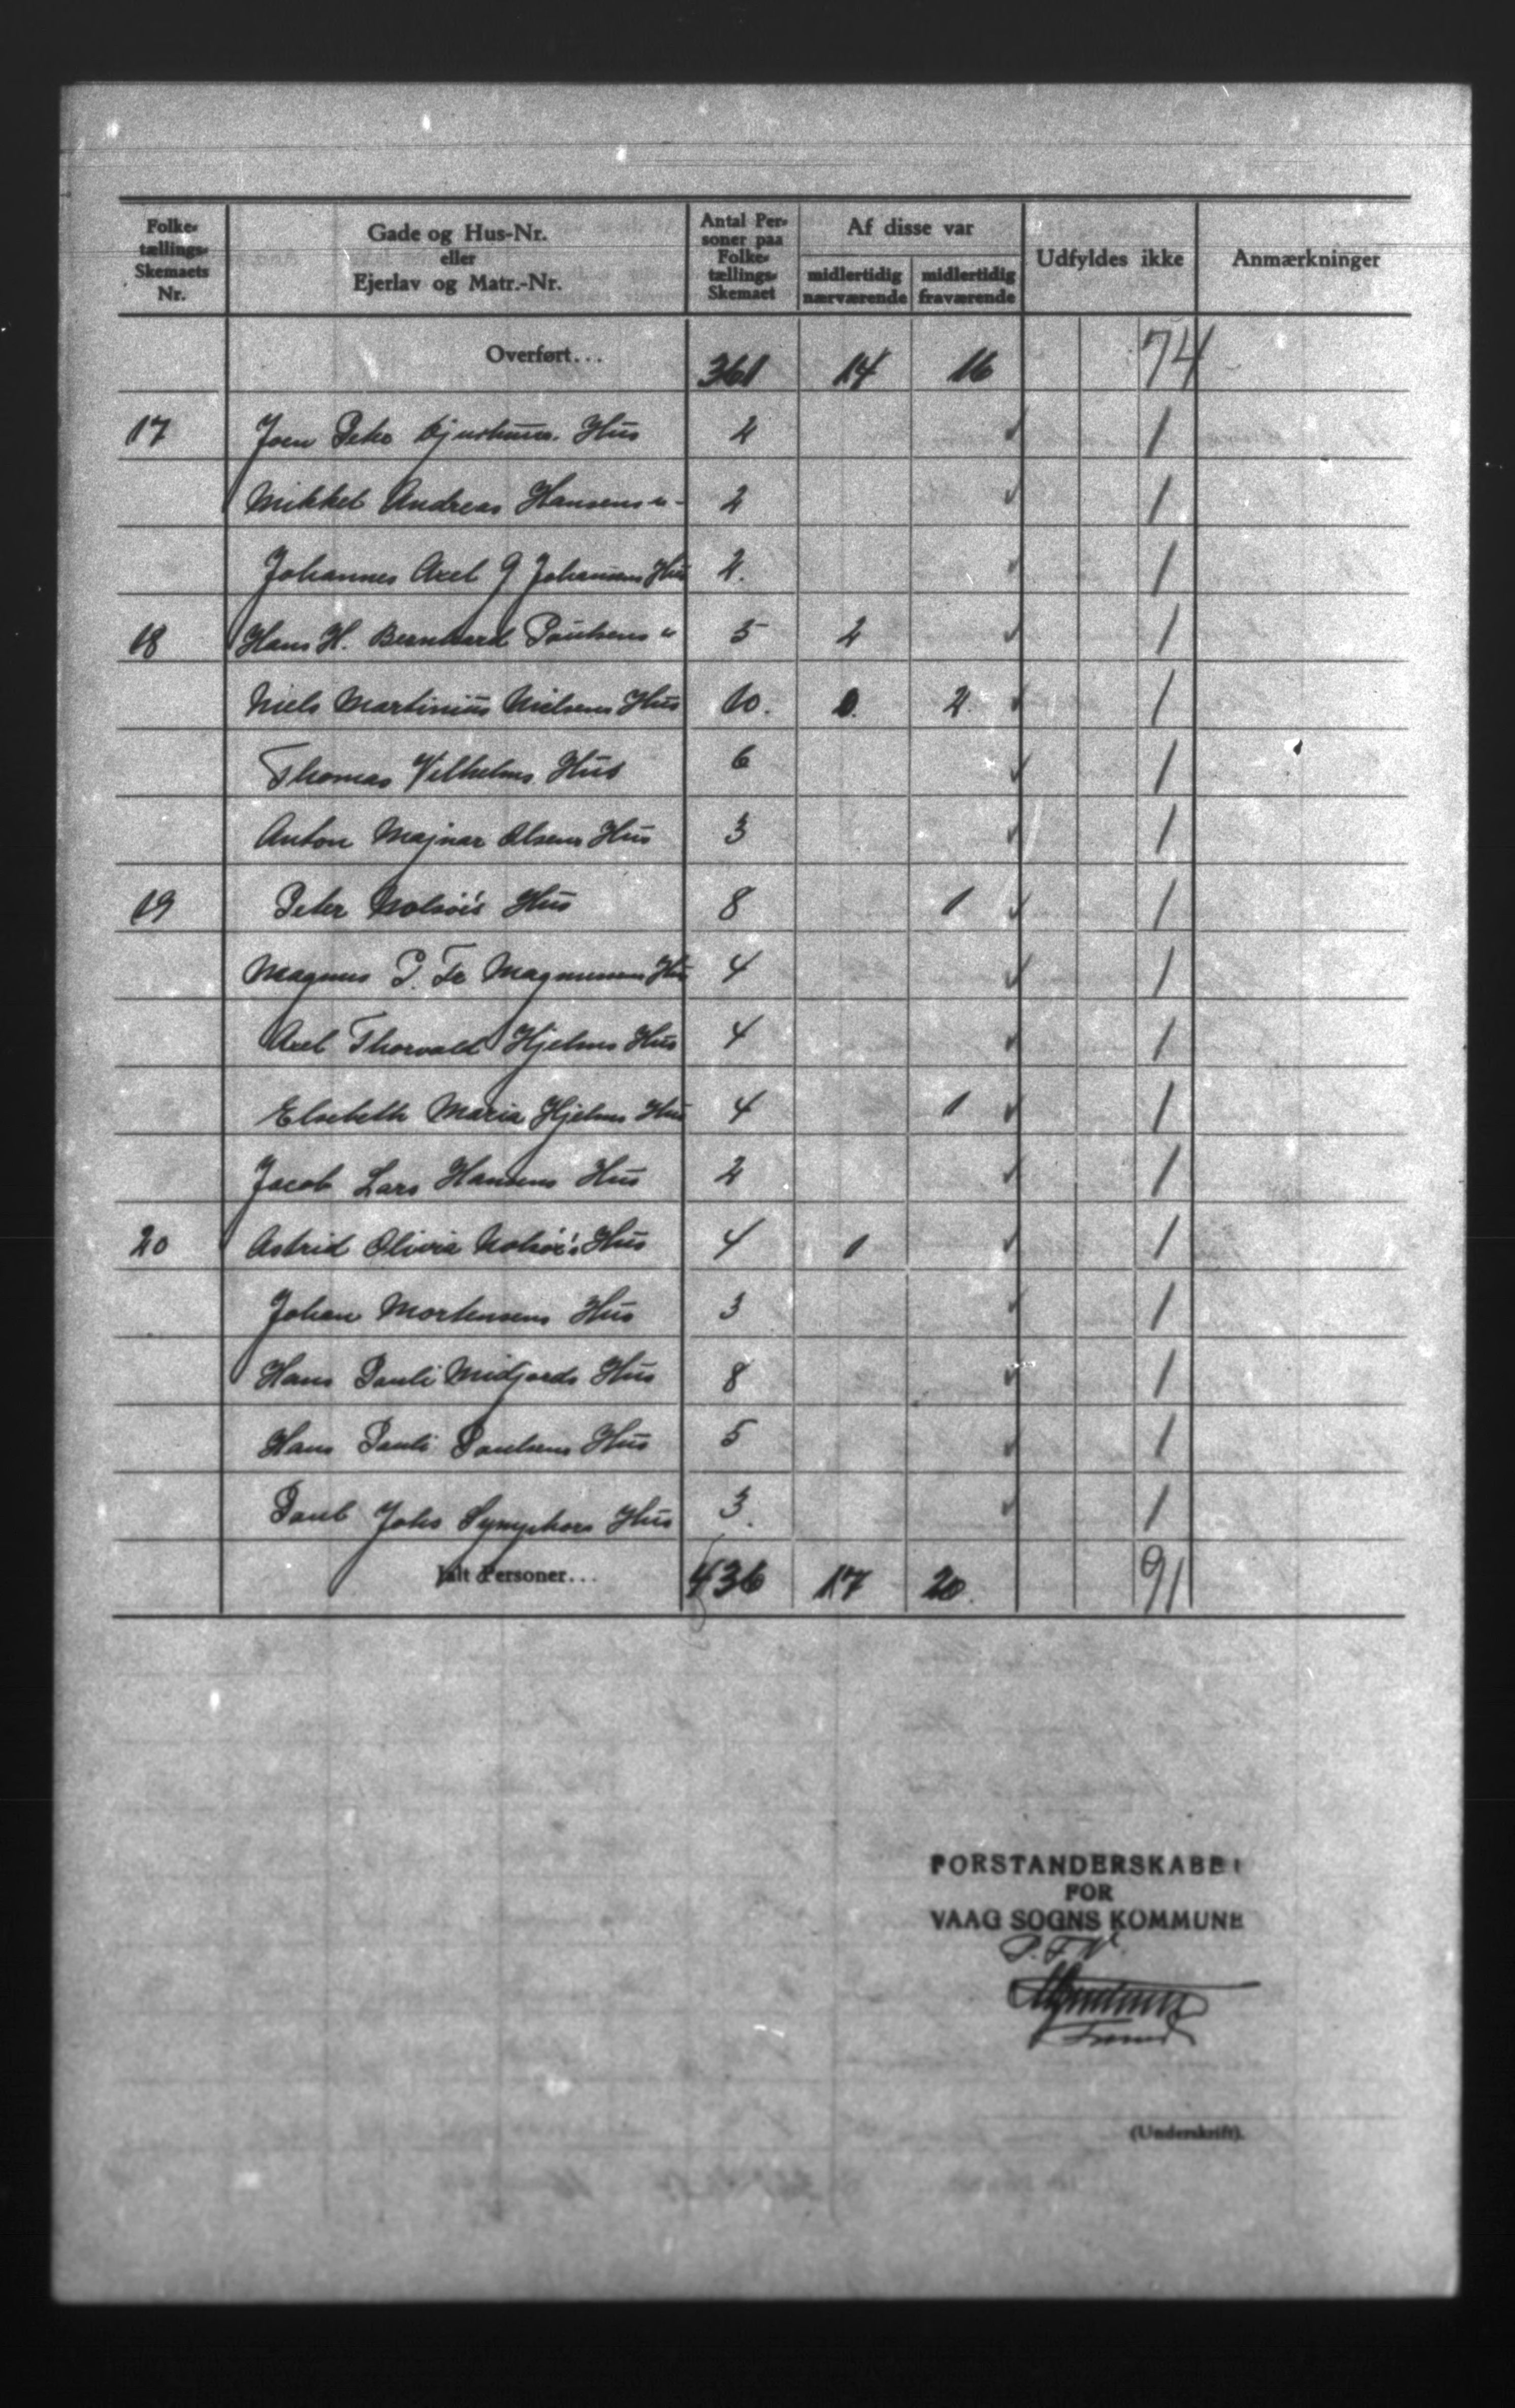 Folke-
tællings-
Skemaets
Nr.
Gade og Hus-Nr.
eller
Ejerlav og Matr.-Nr.
Antal Per-
soner paa
Folke-
tællings-
Skemaet
Af disse var
midlertidig
nærværende
midlertidig
fraværende
Udfyldes ikke
Anmærkninger
Overført... 361 14 16 74
17 Joen Peter Hus 2 ✓ 1
Mikkel Andreas Hansens " 2 ✓ 1
Johannes Axel J Johansens Hus 2. ✓ 1
18 Hans H. Bernhard Poulsens " 5 2 ✓ 1
Niels Martinius Nielsens Hus 10. 2. ✓ 1
Thomas Vilhelms Hus 6 ✓ 1
Anton Majnar Olsens Hus 3 ✓ 1
19 Peter Nolsöe's Hus 8 1 ✓ 1
Magnus P. Fr Magnussens Hus 4 ✓ 1
Axel Thorvald Hjelms Hus 4 ✓ 1
Elsebeth Maria Hjelms Hus 4 1 ✓ 1
Jacob Lars Hansens Hus 2 ✓ 1
20 Astrid Olivia Nolsöe's Hus 4 1 ✓ 1
Johan Mortensens Hus 3 ✓ 1
Hans Pauli Midjords Hus 8 ✓ 1
Hans Pauli Poulsens Hus 5 ✓ 1
Poul Johs Hus 3. ✓ 1
Ialt Personer... 436 17 20. 91
FORSTANDERSKABET
FOR
VAAG SOGNS KOMMUNE
P.F.V.
(Underskrift).